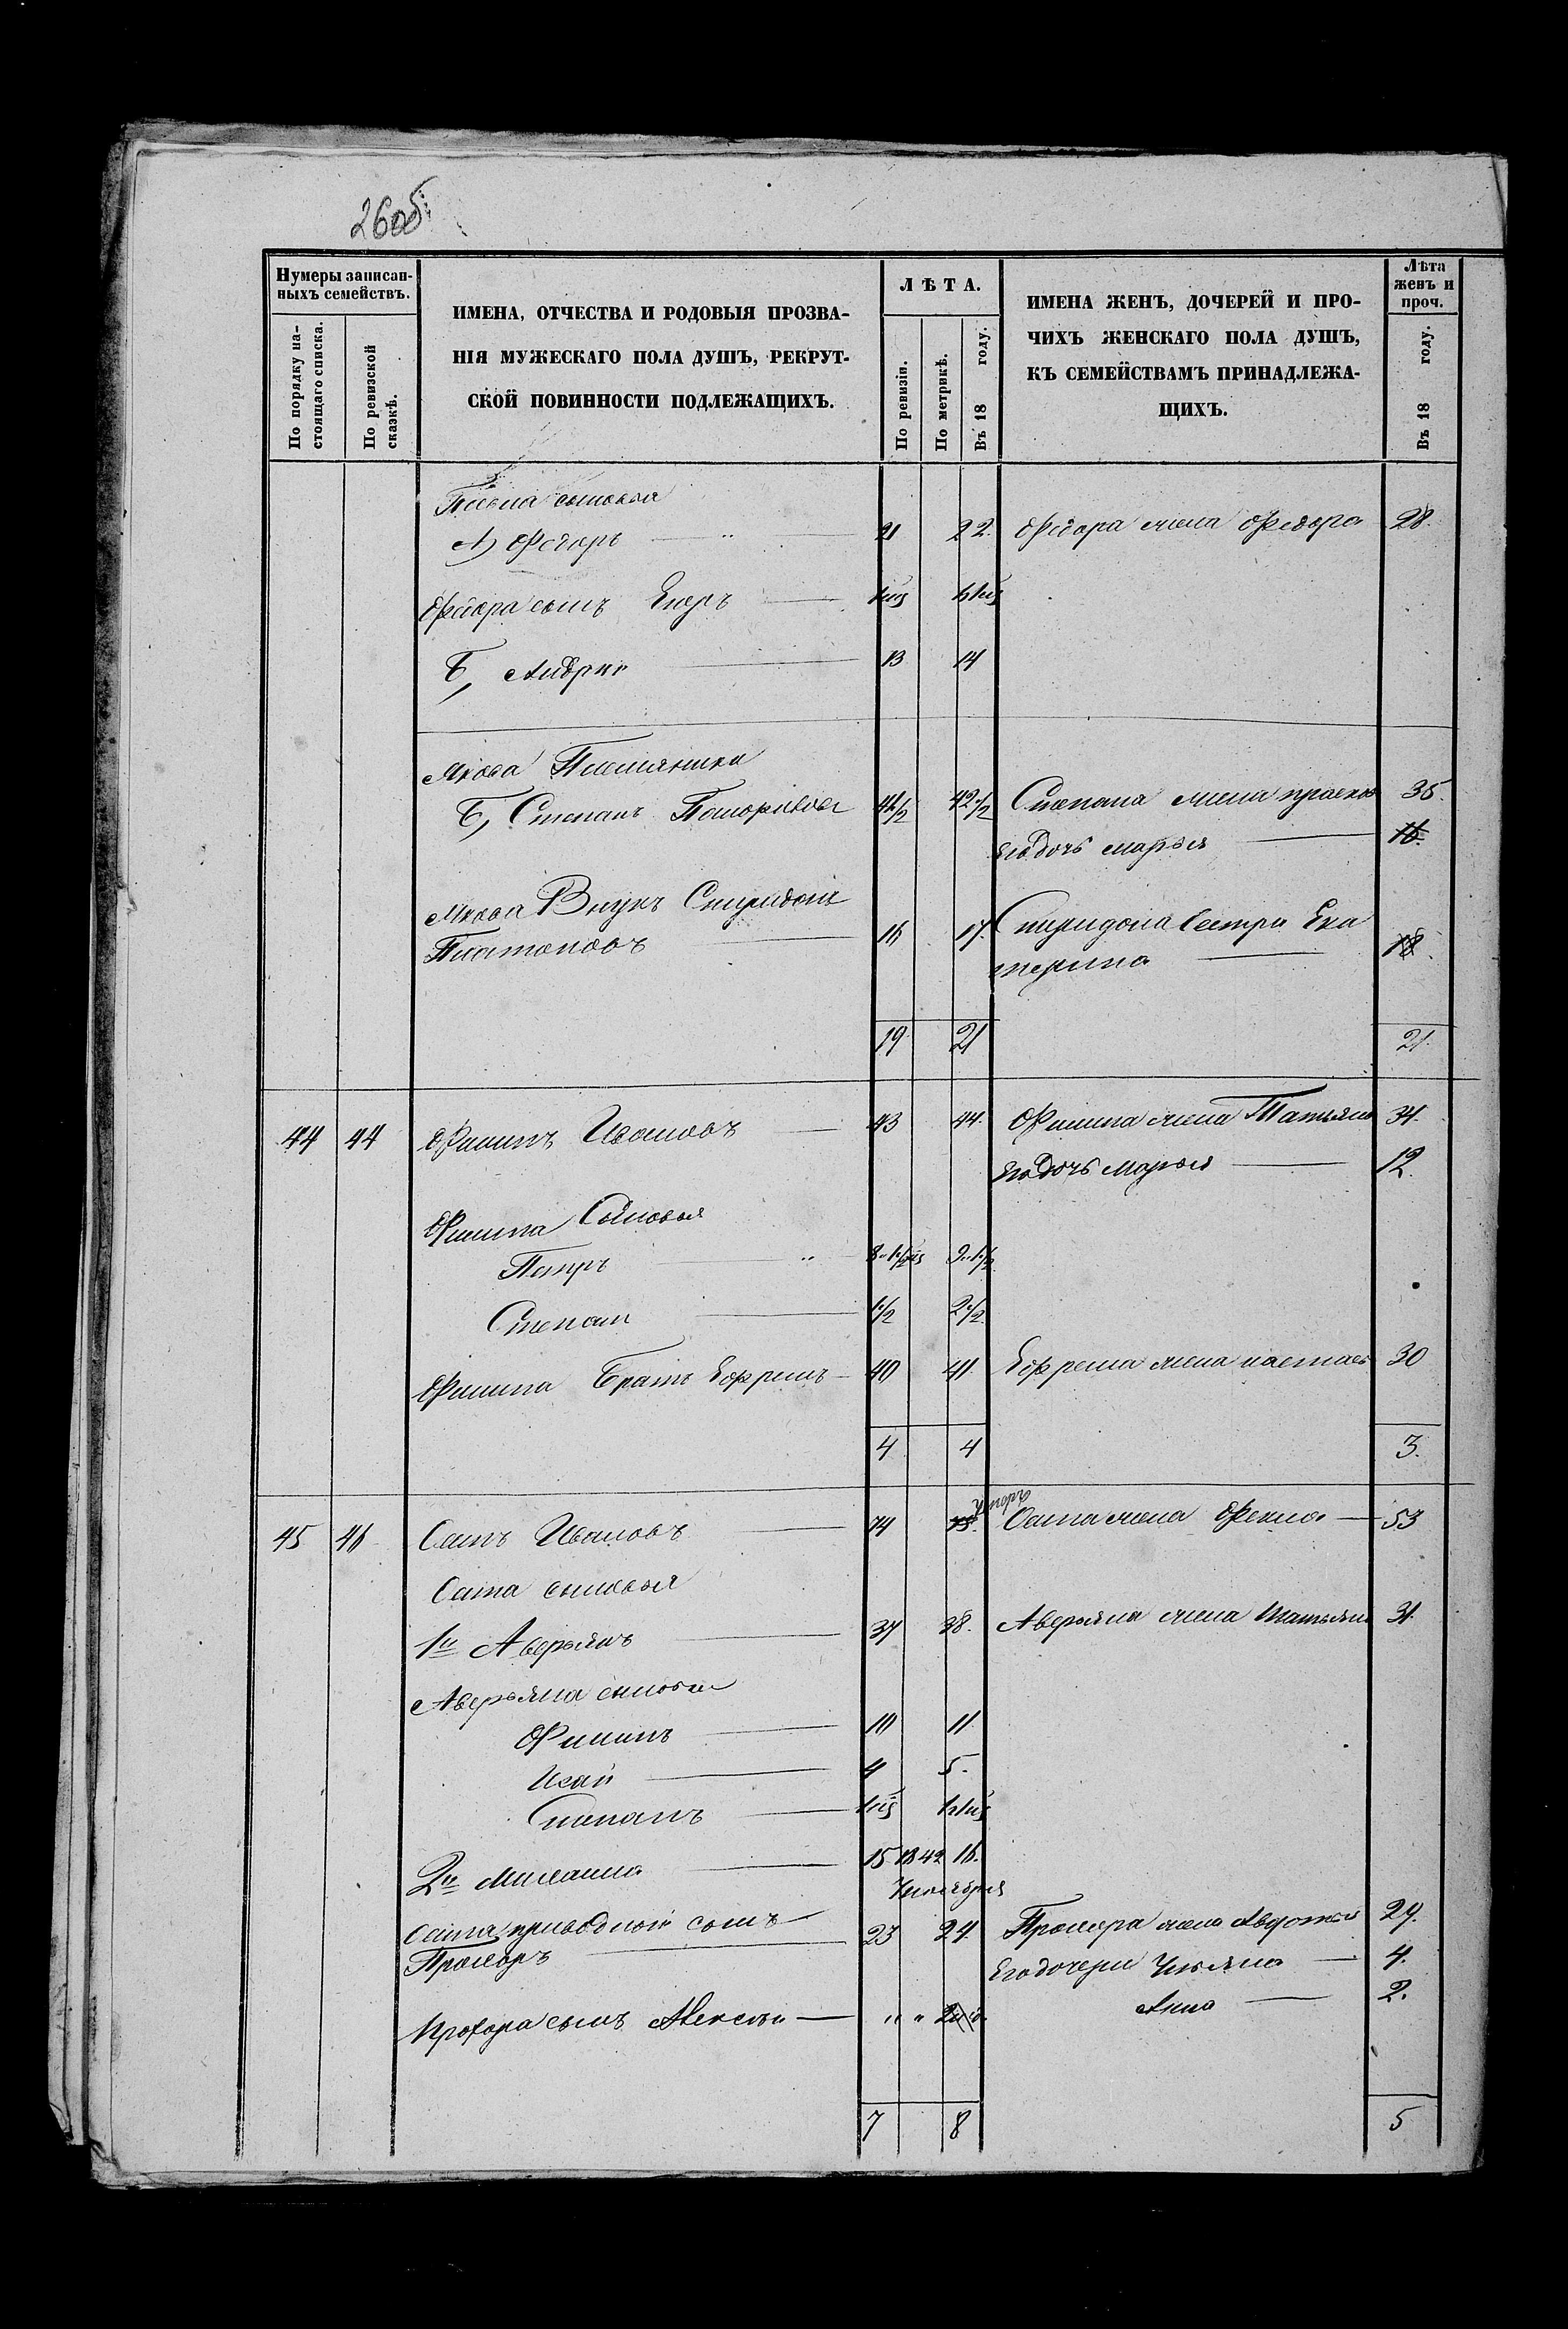 26об.
Нумеры записан-
ныхъ семействъ.
По порядку на-
стоящаго списка.
По ревизской
сказкѣ.
ИМЕНА, ОТЧЕСТВА И РОДОВЫЯ ПРОЗВА-
НІЯ МУЖЕСКАГО ПОЛА ДУШЪ, РЕКРУТ-
СКОЙ ПОВИННОСТИ ПОДЛЕЖАЩИХЪ.
ЛѢТА.
По ревизіи.
По метрикѣ.
Въ 18 году.
ИМЕНА ЖЕНЪ, ДОЧЕРЕЙ И ПРО-
ЧИХЪ ЖЕНСКАГО ПОЛА ДУШЪ,
КЪ СЕМЕЙСТВАМЪ ПРИНАДЛЕЖА-
ЩИХЪ.
Лѣта
женъ и
проч.
Въ 18 году.
сыновья
А, Федоръ 21 22. Федора жена Федора 28.
Федора сынъ Егоръ
Б, Андрей 13 14
Якова Племяники
Б, Степанъ 42 1/2 Степана жена прасков 35.
его дочь марья 16.
Якова Внукъ Спиридонъ
Платоновъ 16 17. Спиридона сестра Ека
терина 18.
19 21 21.
44 44 Филипъ Ивановъ 43 44. Филипа жена Татьяна 34.
его дочь марья 12.
Филипа Сыновья
Петръ 9 1/2
Степан 1 1/2 2 1/2
Филипа братъ Ефремъ 40 41 Ефрема жена настас 30
4 4 3.
45 46 Сатъ Ивановъ 74 75. умеръ Сата жена Фекла 53
Сата сыновья
1й Аверьянъ 37 38. Аверьяна жена татьяна 31.
Аверьяна сыновья
Филипъ 10 11
Исай 4 5.
Степанъ
2й 15 1842 16.
Сата приводной сынъ
Прохоръ 23 24. Прохора жена Авдотья 29.
его дочери Ульяна 4.
Анна 2.
Прохора сынъ Алексѣй " "
7 8 5